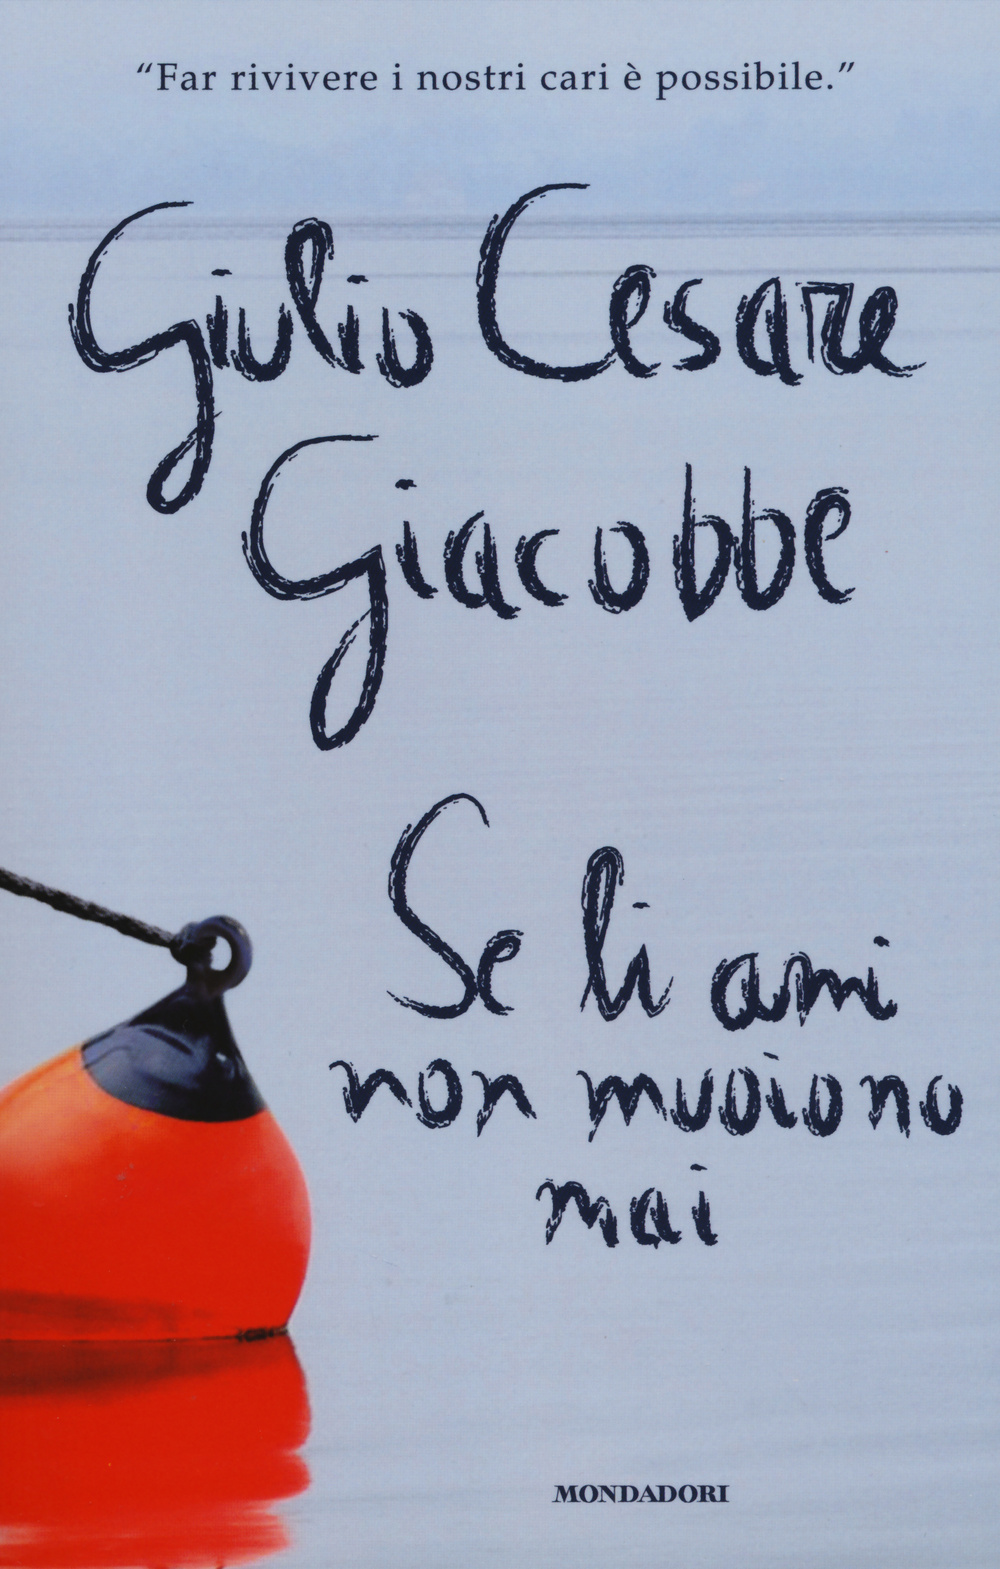 “Far rivivere i nostri cari è possibile.”
Giulio Cesare
Giacobbe
Se li ami
non muoiono
mai
MONDADORI